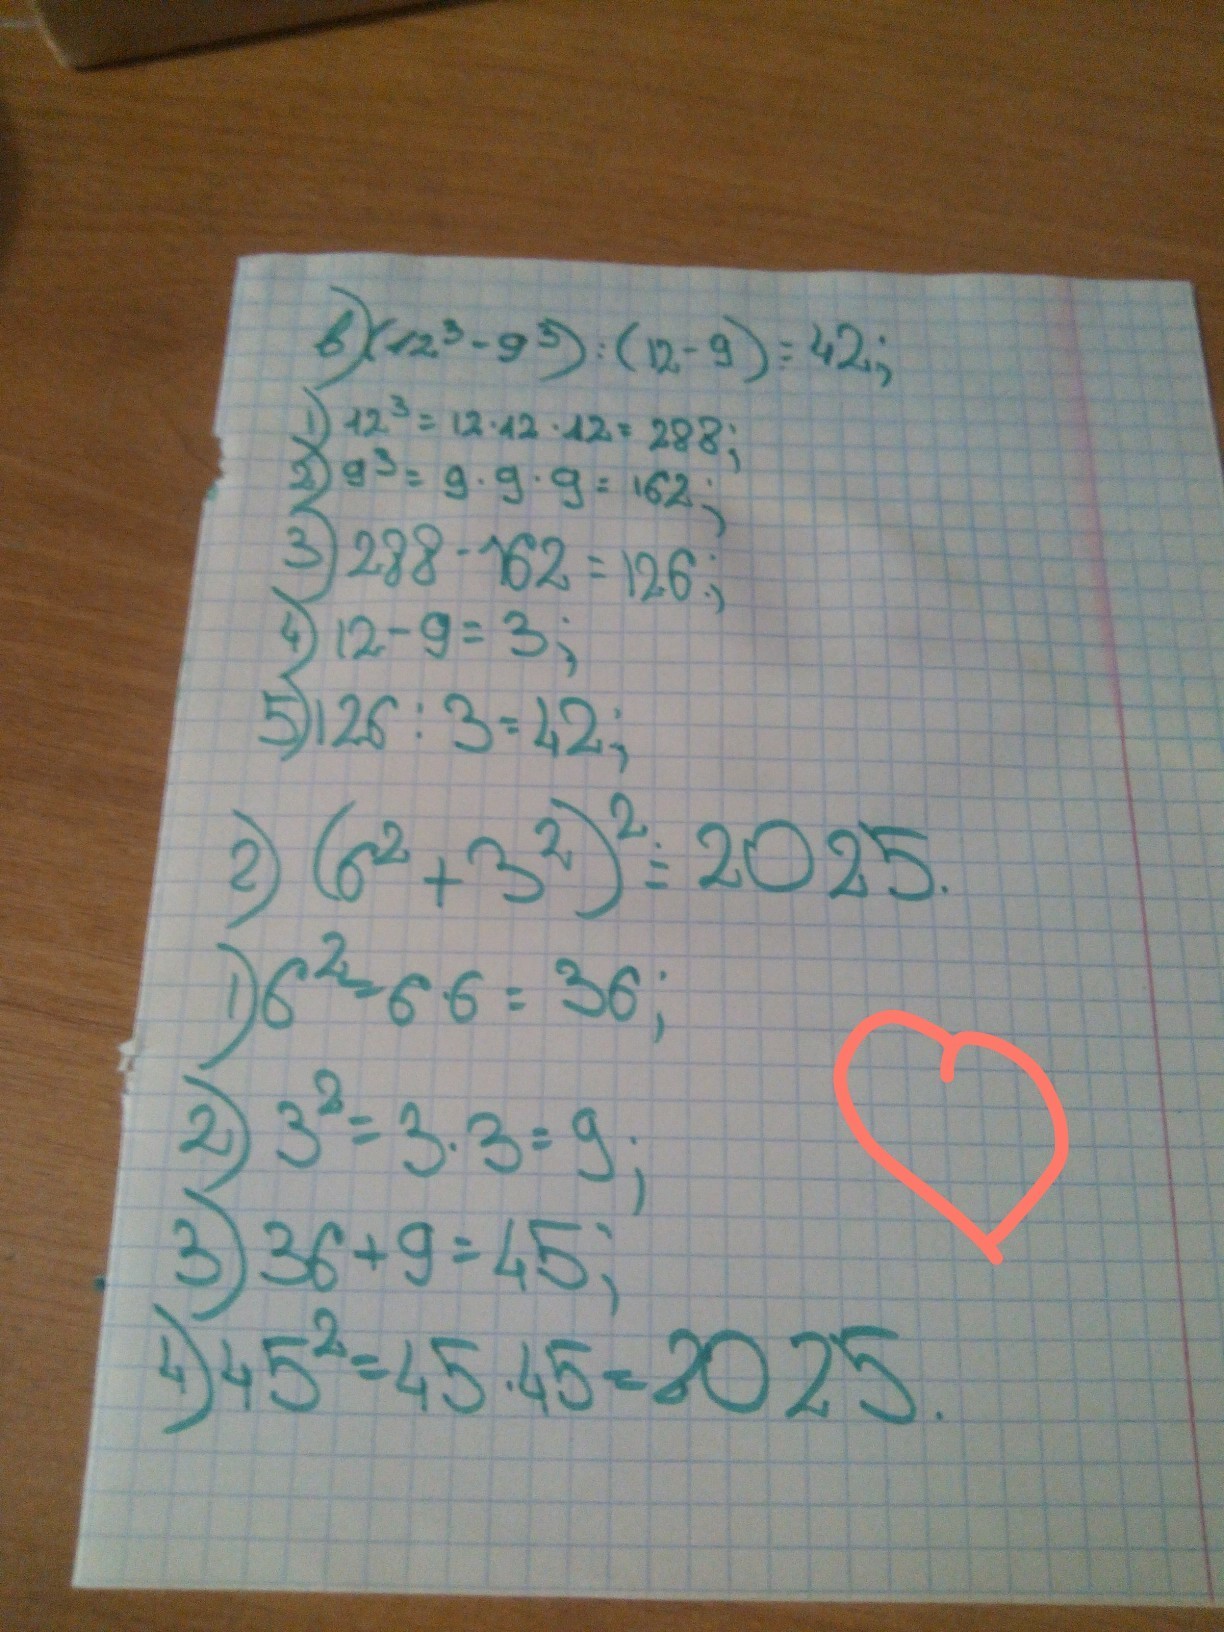 в) (12³ - 9³) : (12 - 9) = 42;
1) 12³ = 12·12·12 = 288;
2) 9³ = 9·9·9 = 162;
3) 288 - 162 = 126;
4) 12 - 9 = 3;
5) 126 : 3 = 42;
г) (6² + 3²)² = 2025.
1) 6² = 6·6 = 36;
2) 3² = 3·3 = 9;
3) 36 + 9 = 45;
4) 45² = 45·45 = 2025.